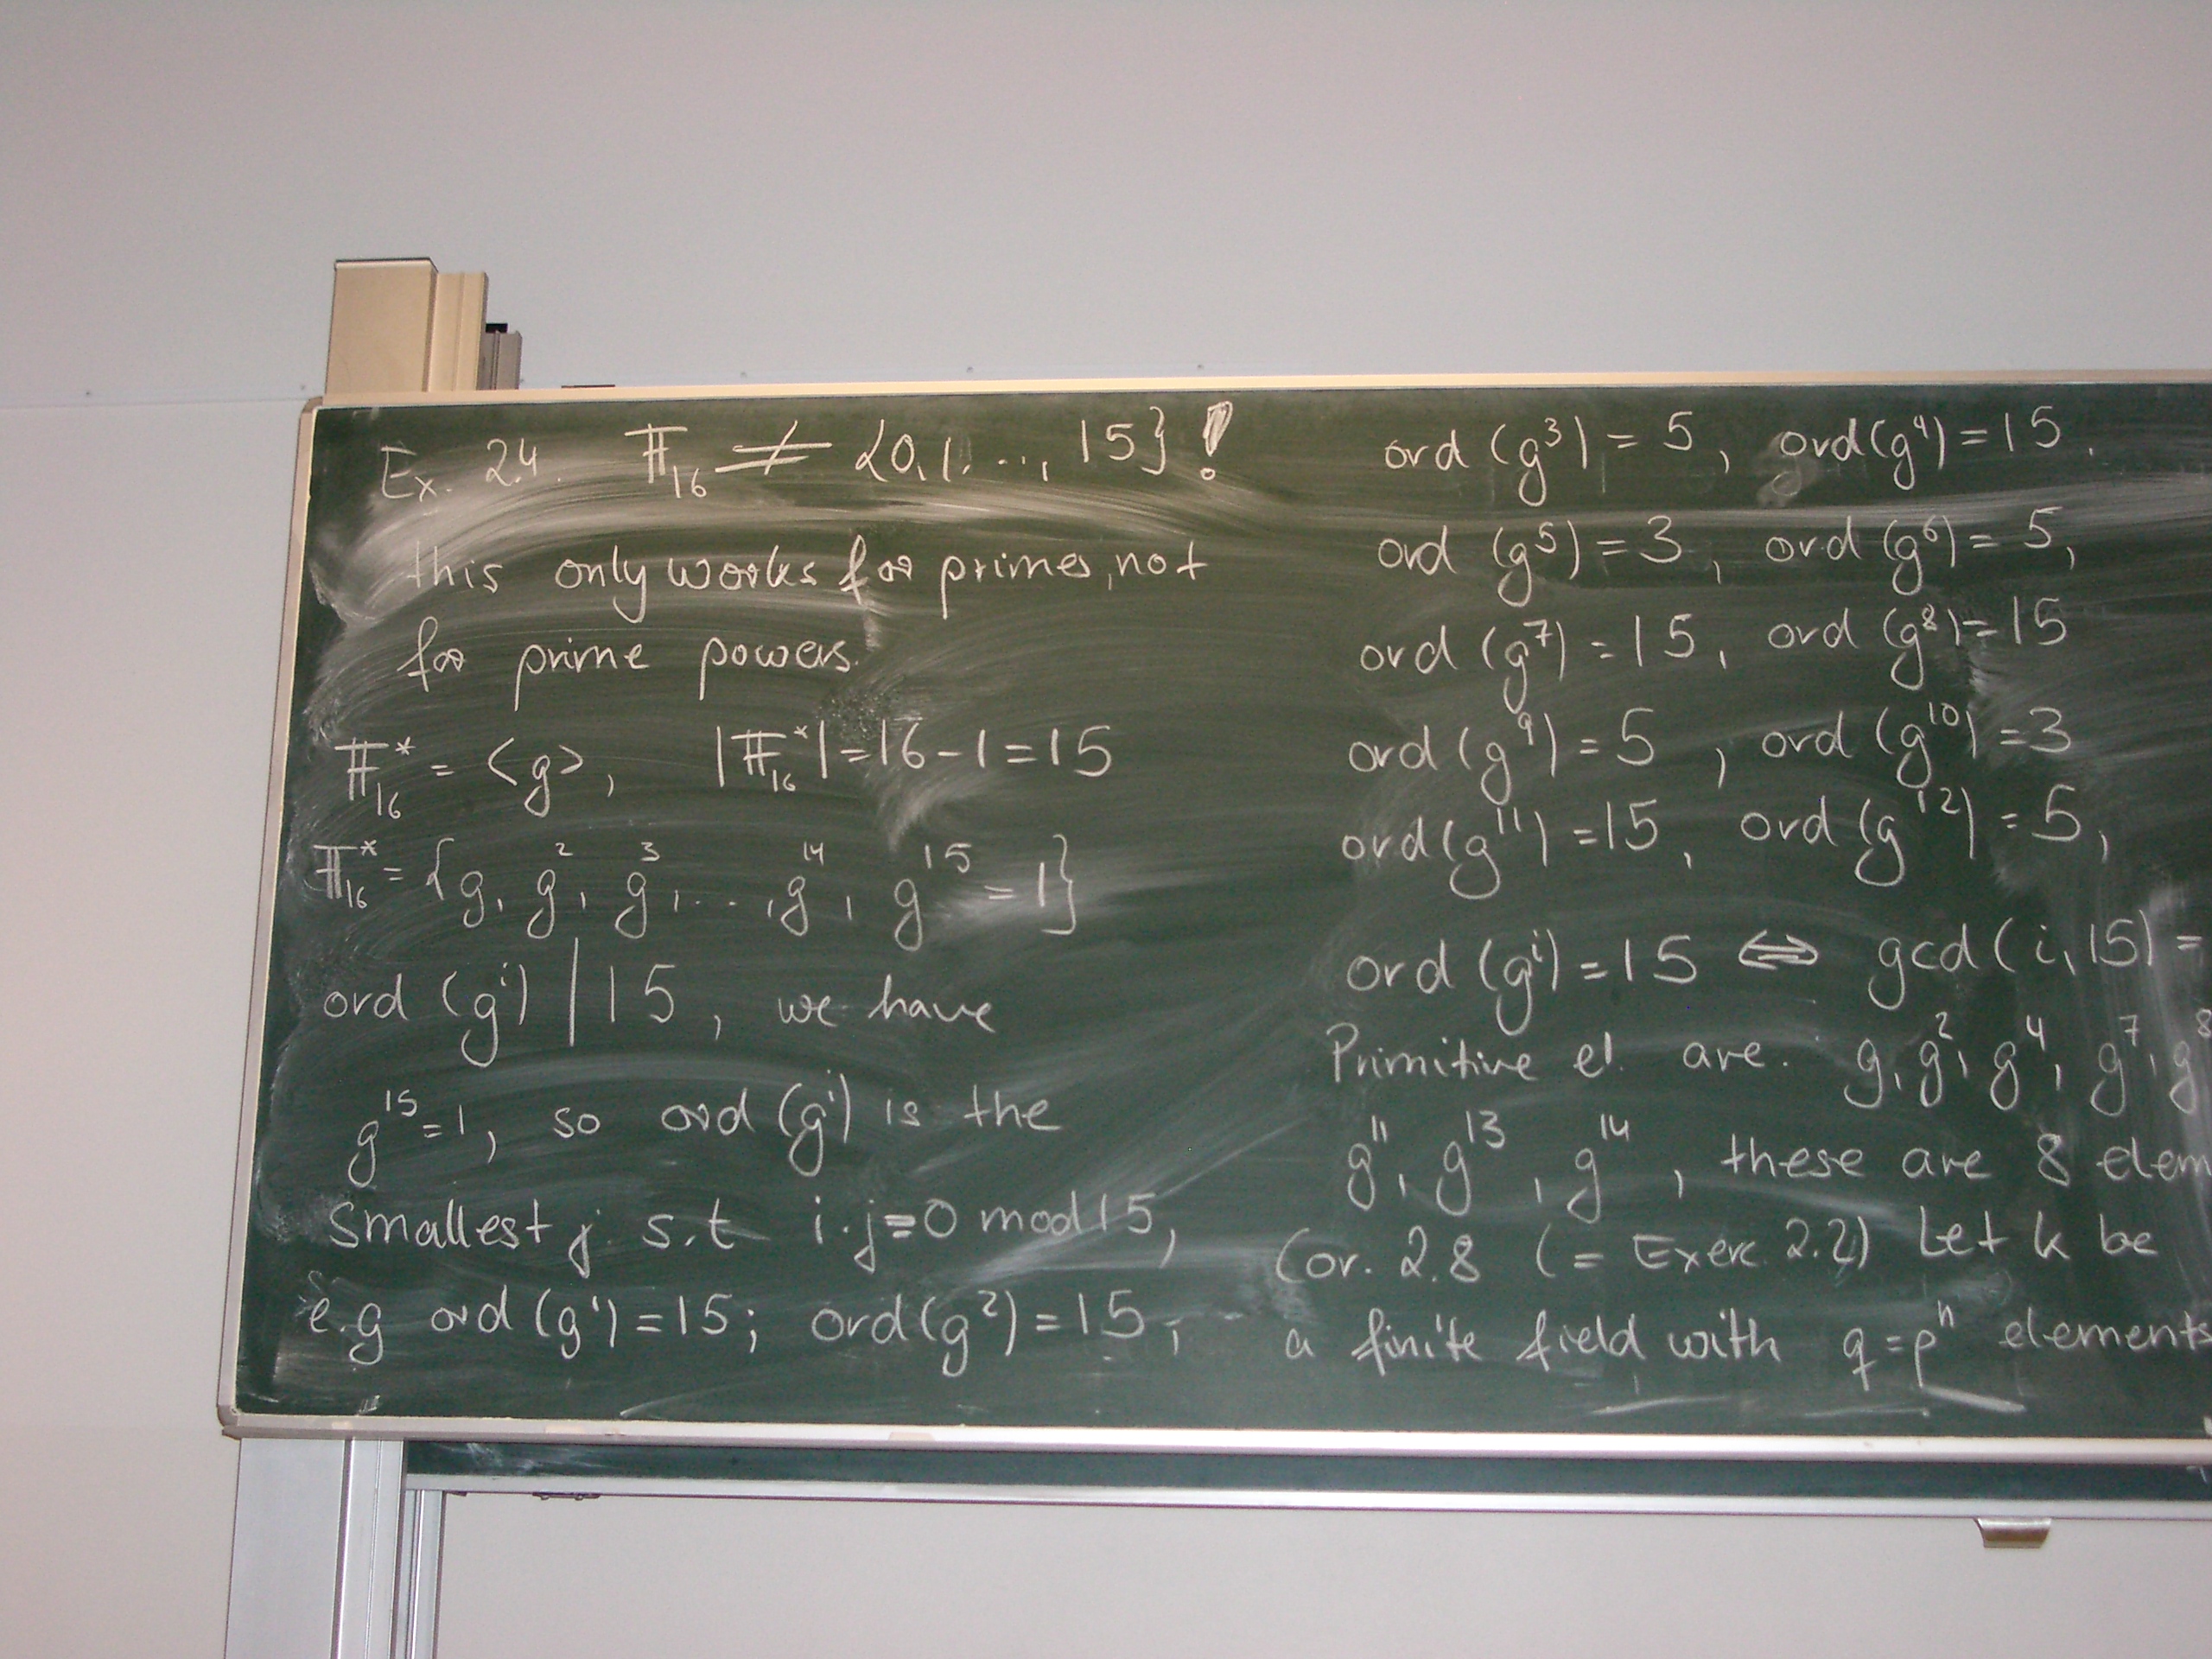 Ex. 2.4. 𝔽₁₆ ≠ {0,1,..., 15}!
this only works for primes, not
for prime powers.
𝔽₁₆* = <g>, |𝔽₁₆*| = 16-1 = 15
𝔽₁₆* = {g, g², g³, ..., g¹⁴, g¹⁵ = 1}
ord (gⁱ) | 15, we have
g¹⁵ = 1, so ord (gⁱ) is the
smallest j s.t i·j = 0 mod 15,
e.g ord (g¹) = 15; ord (g²) = 15;
ord (g³) = 5, ord(g⁴) = 15.
ord (g⁵) = 3, ord (g⁶) = 5,
ord (g⁷) = 15, ord (g⁸) = 15
ord (g⁹) = 5, ord (g¹⁰) = 3
ord(g¹¹) = 15, ord (g¹²) = 5,
ord (gⁱ) = 15 ⇔ gcd (i, 15) =
Primitive el. are. g, g², g⁴, g⁷, g⁸
g¹¹, g¹³, g¹⁴, these are 8 elem
Cor. 2.8 (= Exerc. 2.2) Let k be
a finite field with q = pⁿ elements